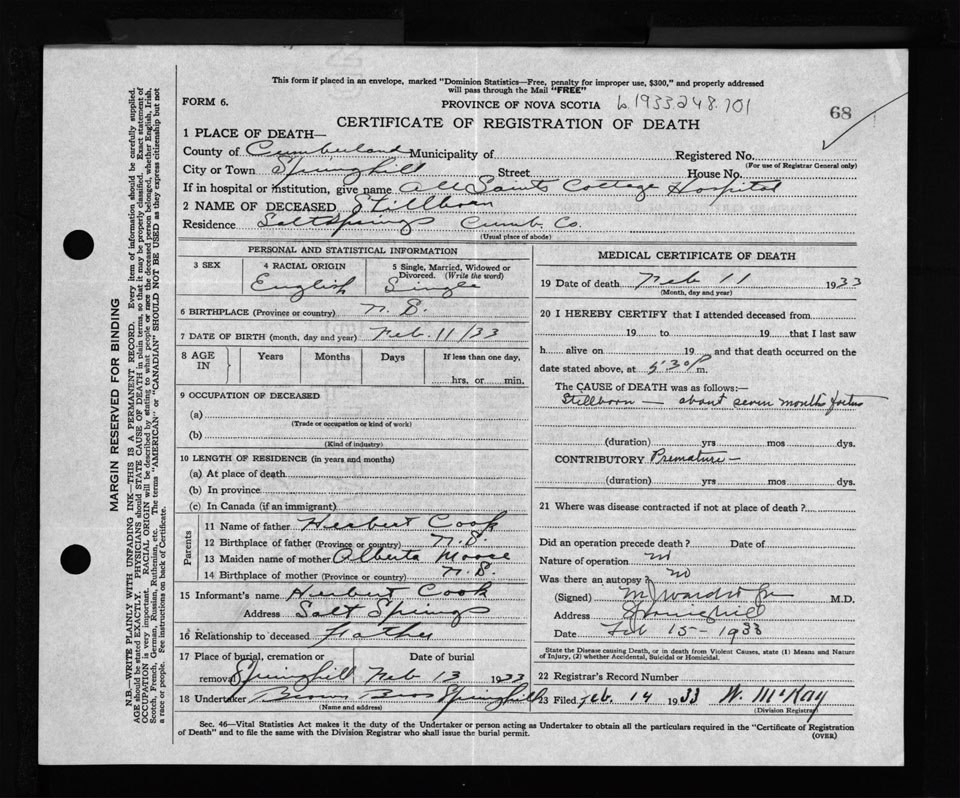 This form if placed in an envelope, marked "Dominion Statistics—Free, penalty for improper use, $300," and properly addressed
will pass through the Mail "FREE"
FORM 6.
PROVINCE OF NOVA SCOTIA
1933 248.701
68
CERTIFICATE OF REGISTRATION OF DEATH
1 PLACE OF DEATH—
County of Cumberland Municipality of
Registered No.
(For use of Registrar General only)
City or Town Springhill Street House No.
If in hospital or institution, give name All Saints Cottage Hospital
2 NAME OF DECEASED Stillborn
Residence Salt Springs Cumb. Co.
(Usual place of abode)
PERSONAL AND STATISTICAL INFORMATION
3 SEX
4 RACIAL ORIGIN
English
5 Single, Married, Widowed or
Divorced. (Write the word)
Single
6 BIRTHPLACE (Province or country) N. S.
7 DATE OF BIRTH (month, day and year) Feb. 11/33
8 AGE
IN
Years
Months
Days
If less than one day,
hrs. or min.
9 OCCUPATION OF DECEASED
(a)
(Trade or occupation or kind of work)
(b)
(Kind of industry)
10 LENGTH OF RESIDENCE (in years and months)
(a) At place of death
(b) In province
(c) In Canada (if an immigrant)
Parents
11 Name of father Herbert Cook
12 Birthplace of father (Province or country) N. S.
13 Maiden name of mother Alberta Moose
14 Birthplace of mother (Province or country) N. S.
15 Informant's name Herbert Cook
Address Salt Springs
16 Relationship to deceased Father
17 Place of burial, cremation or
removal Springhill
Date of burial
Feb 13 1933
18 Undertaker Brown Bros Springhill
(Name and address)
MEDICAL CERTIFICATE OF DEATH
19 Date of death Feb 11 1933
(Month, day and year)
20 I HEREBY CERTIFY that I attended deceased from
19 to 19 that I last saw
h alive on 19 and that death occurred on the
date stated above, at 5:30 P m.
The CAUSE OF DEATH was as follows:—
Stillborn — about seven months foetus
(duration) yrs mos dys.
CONTRIBUTORY Premature —
(duration) yrs mos dys.
21 Where was disease contracted if not at place of death?
Did an operation precede death? Date of
Nature of operation no
Was there an autopsy? no
(Signed) M.D.
Address Springhill
Date Feb 15 - 1933
State the Disease causing Death, or in death from Violent Causes, state (1) Means and Nature
of Injury, (2) whether Accidental, Suicidal or Homicidal.
22 Registrar's Record Number
23 Filed Feb. 14 1933 W. McKay
(Division Registrar)
Sec. 46—Vital Statistics Act makes it the duty of the Undertaker or person acting as Undertaker to obtain all the particulars required in the "Certificate of Registration
of Death" and to file the same with the Division Registrar who shall issue the burial permit.
(OVER)
MARGIN RESERVED FOR BINDING
N.B.—WRITE PLAINLY WITH UNFADING INK—THIS IS A PERMANENT RECORD. Every item of information should be carefully supplied.
AGE should be stated EXACTLY. PHYSICIANS should STATE CAUSE OF DEATH in plain terms, so that it may be properly classified. Exact statement of
OCCUPATION is very important. RACIAL ORIGIN will be described by stating to what people or race the deceased person belonged, whether English, Irish,
Scotch, French, German, Russian, Ruthenian, etc. The terms "AMERICAN" or "CANADIAN" SHOULD NOT BE USED as they express citizenship but not
a race or people. See instructions on back of Certificate.